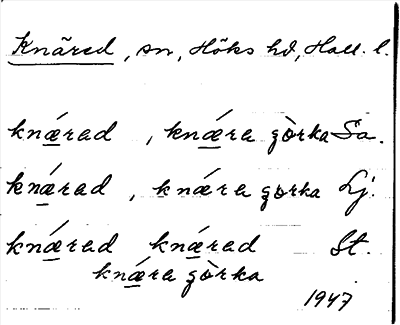 Knäred, sn, Höks hd, Hall. l.
knǽrad, knǽra gòrka Sa.
knǽrad, knǽra gorka Lj.
knǽrad knǽrad St.
knǽra gòrka
1947